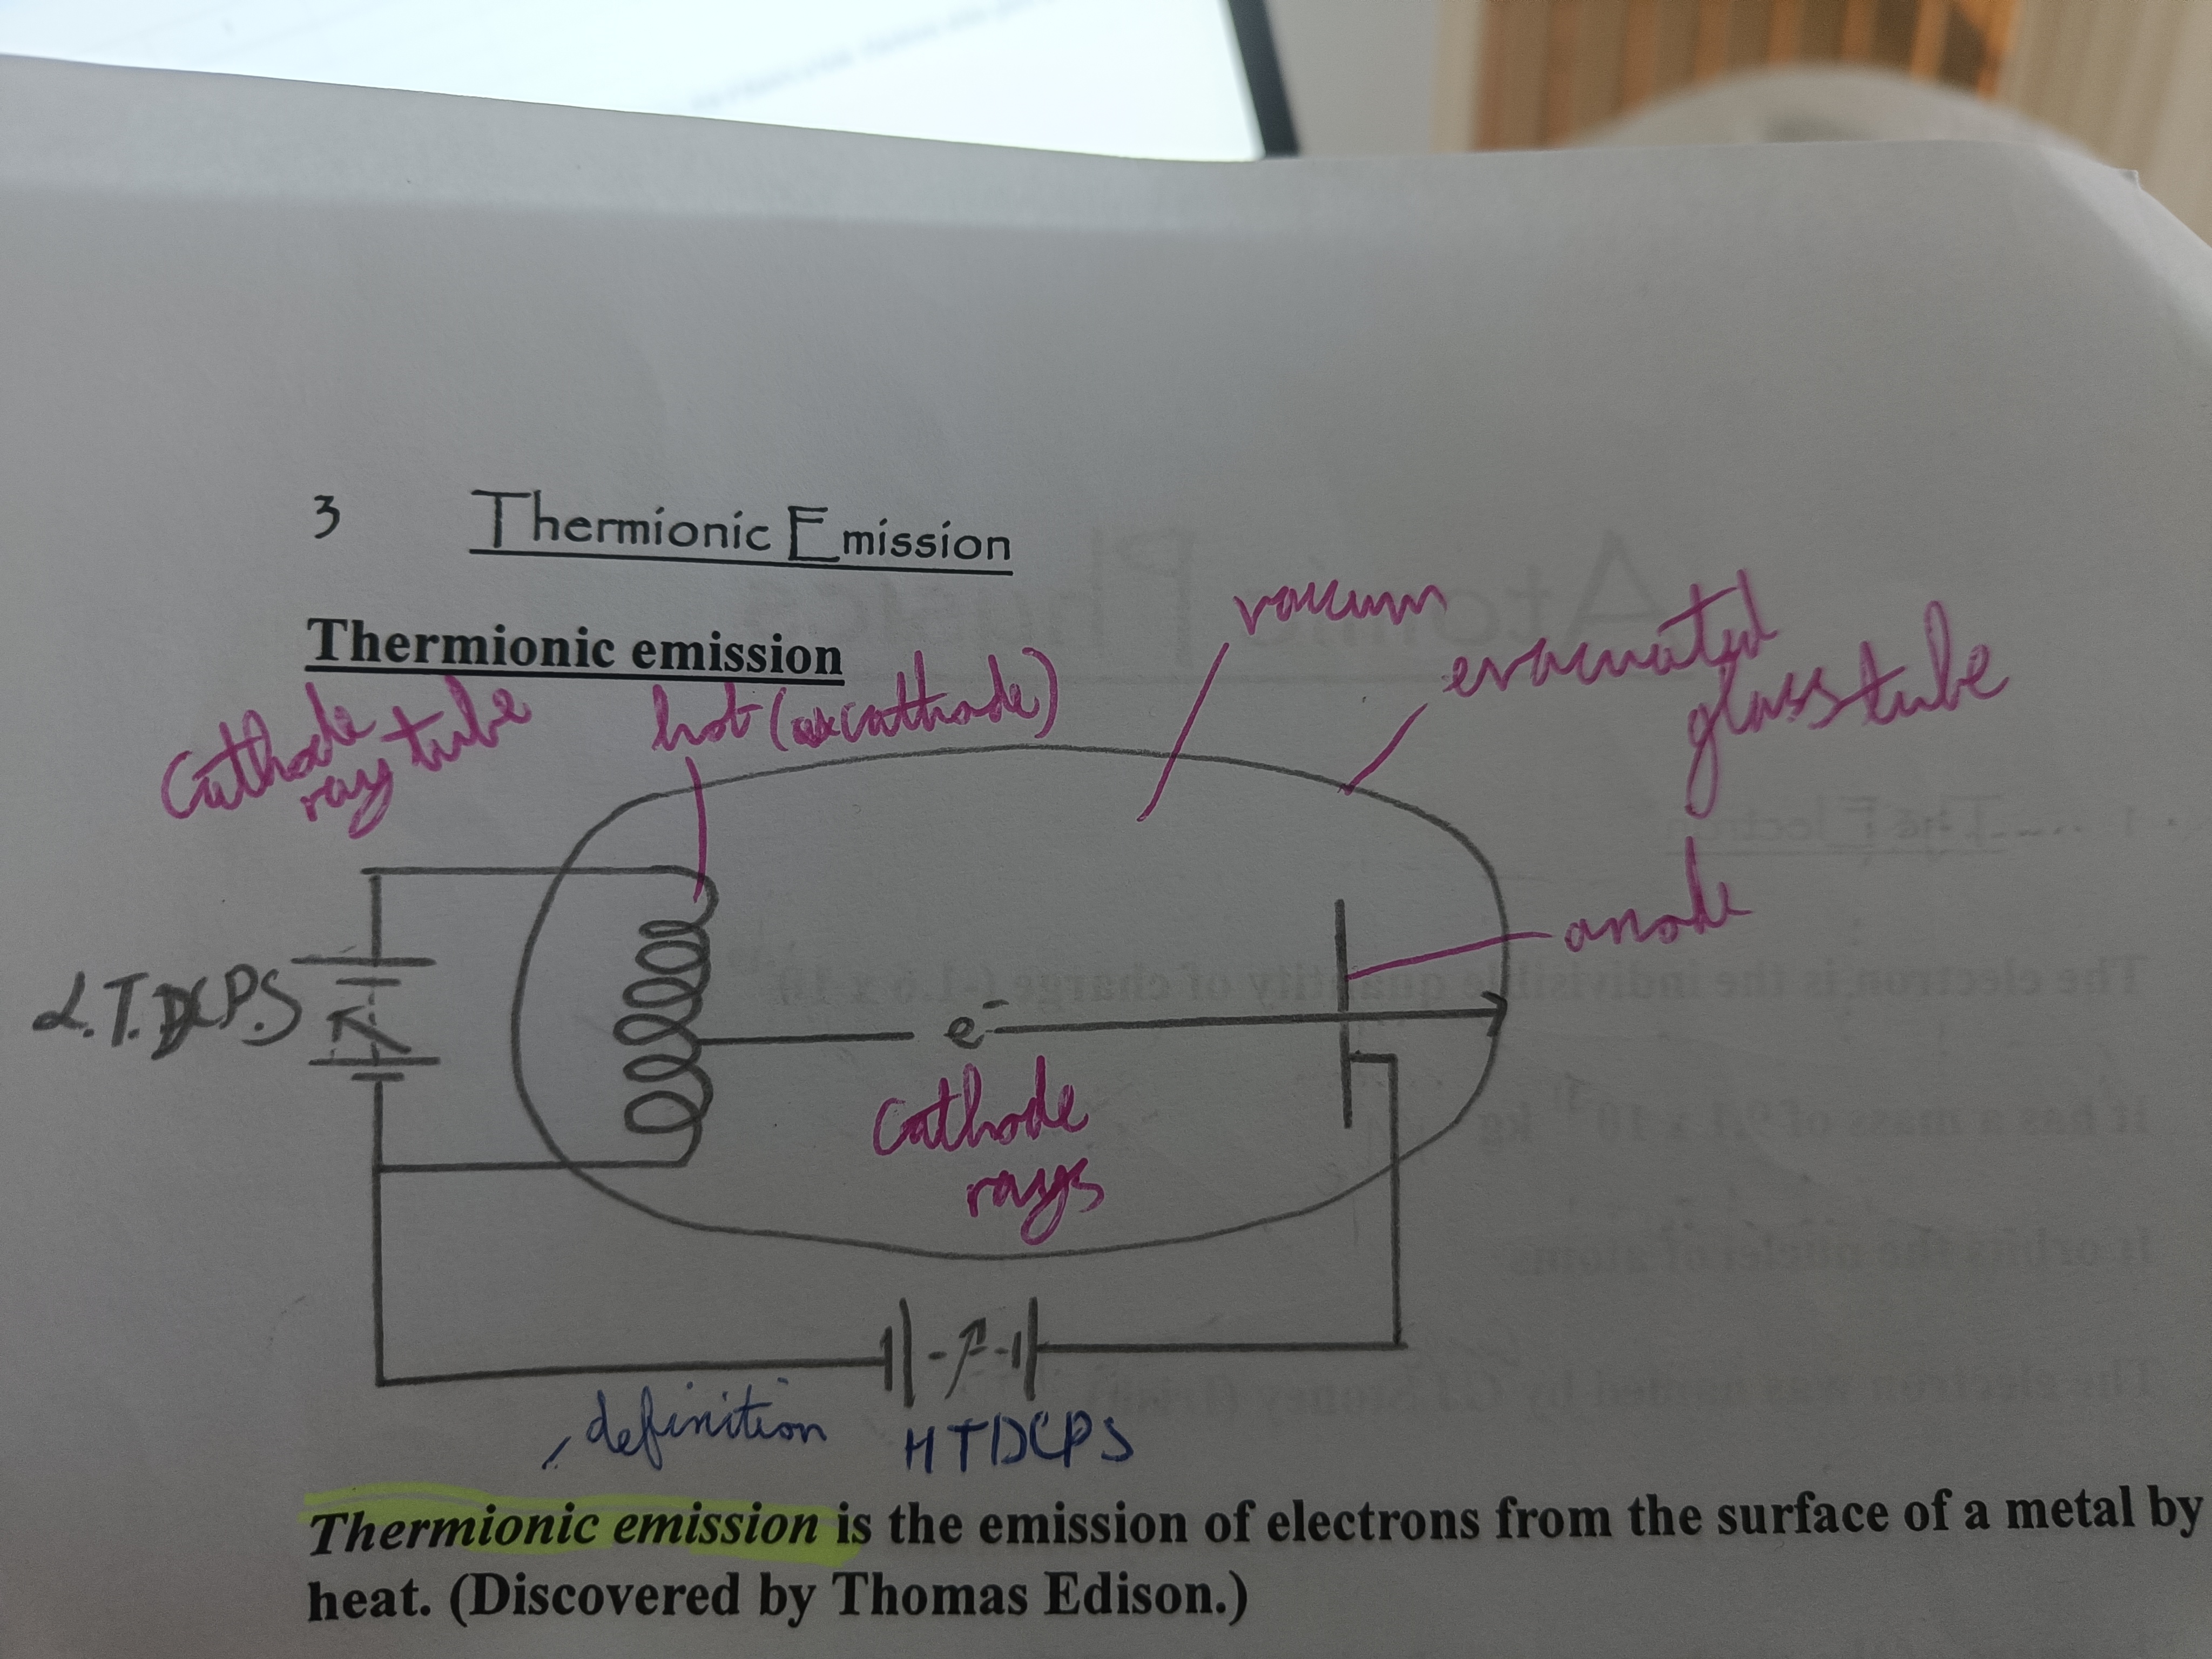 3 Thermionic Emission
Thermionic emission
Cathode
ray tube
hot (cathode)
vacuum
evacuated
glass tube
anode
L.T.DCP.S
e-
Cathode
rays
definition
HTDCPS
Thermionic emission is the emission of electrons from the surface of a metal by
heat. (Discovered by Thomas Edison.)